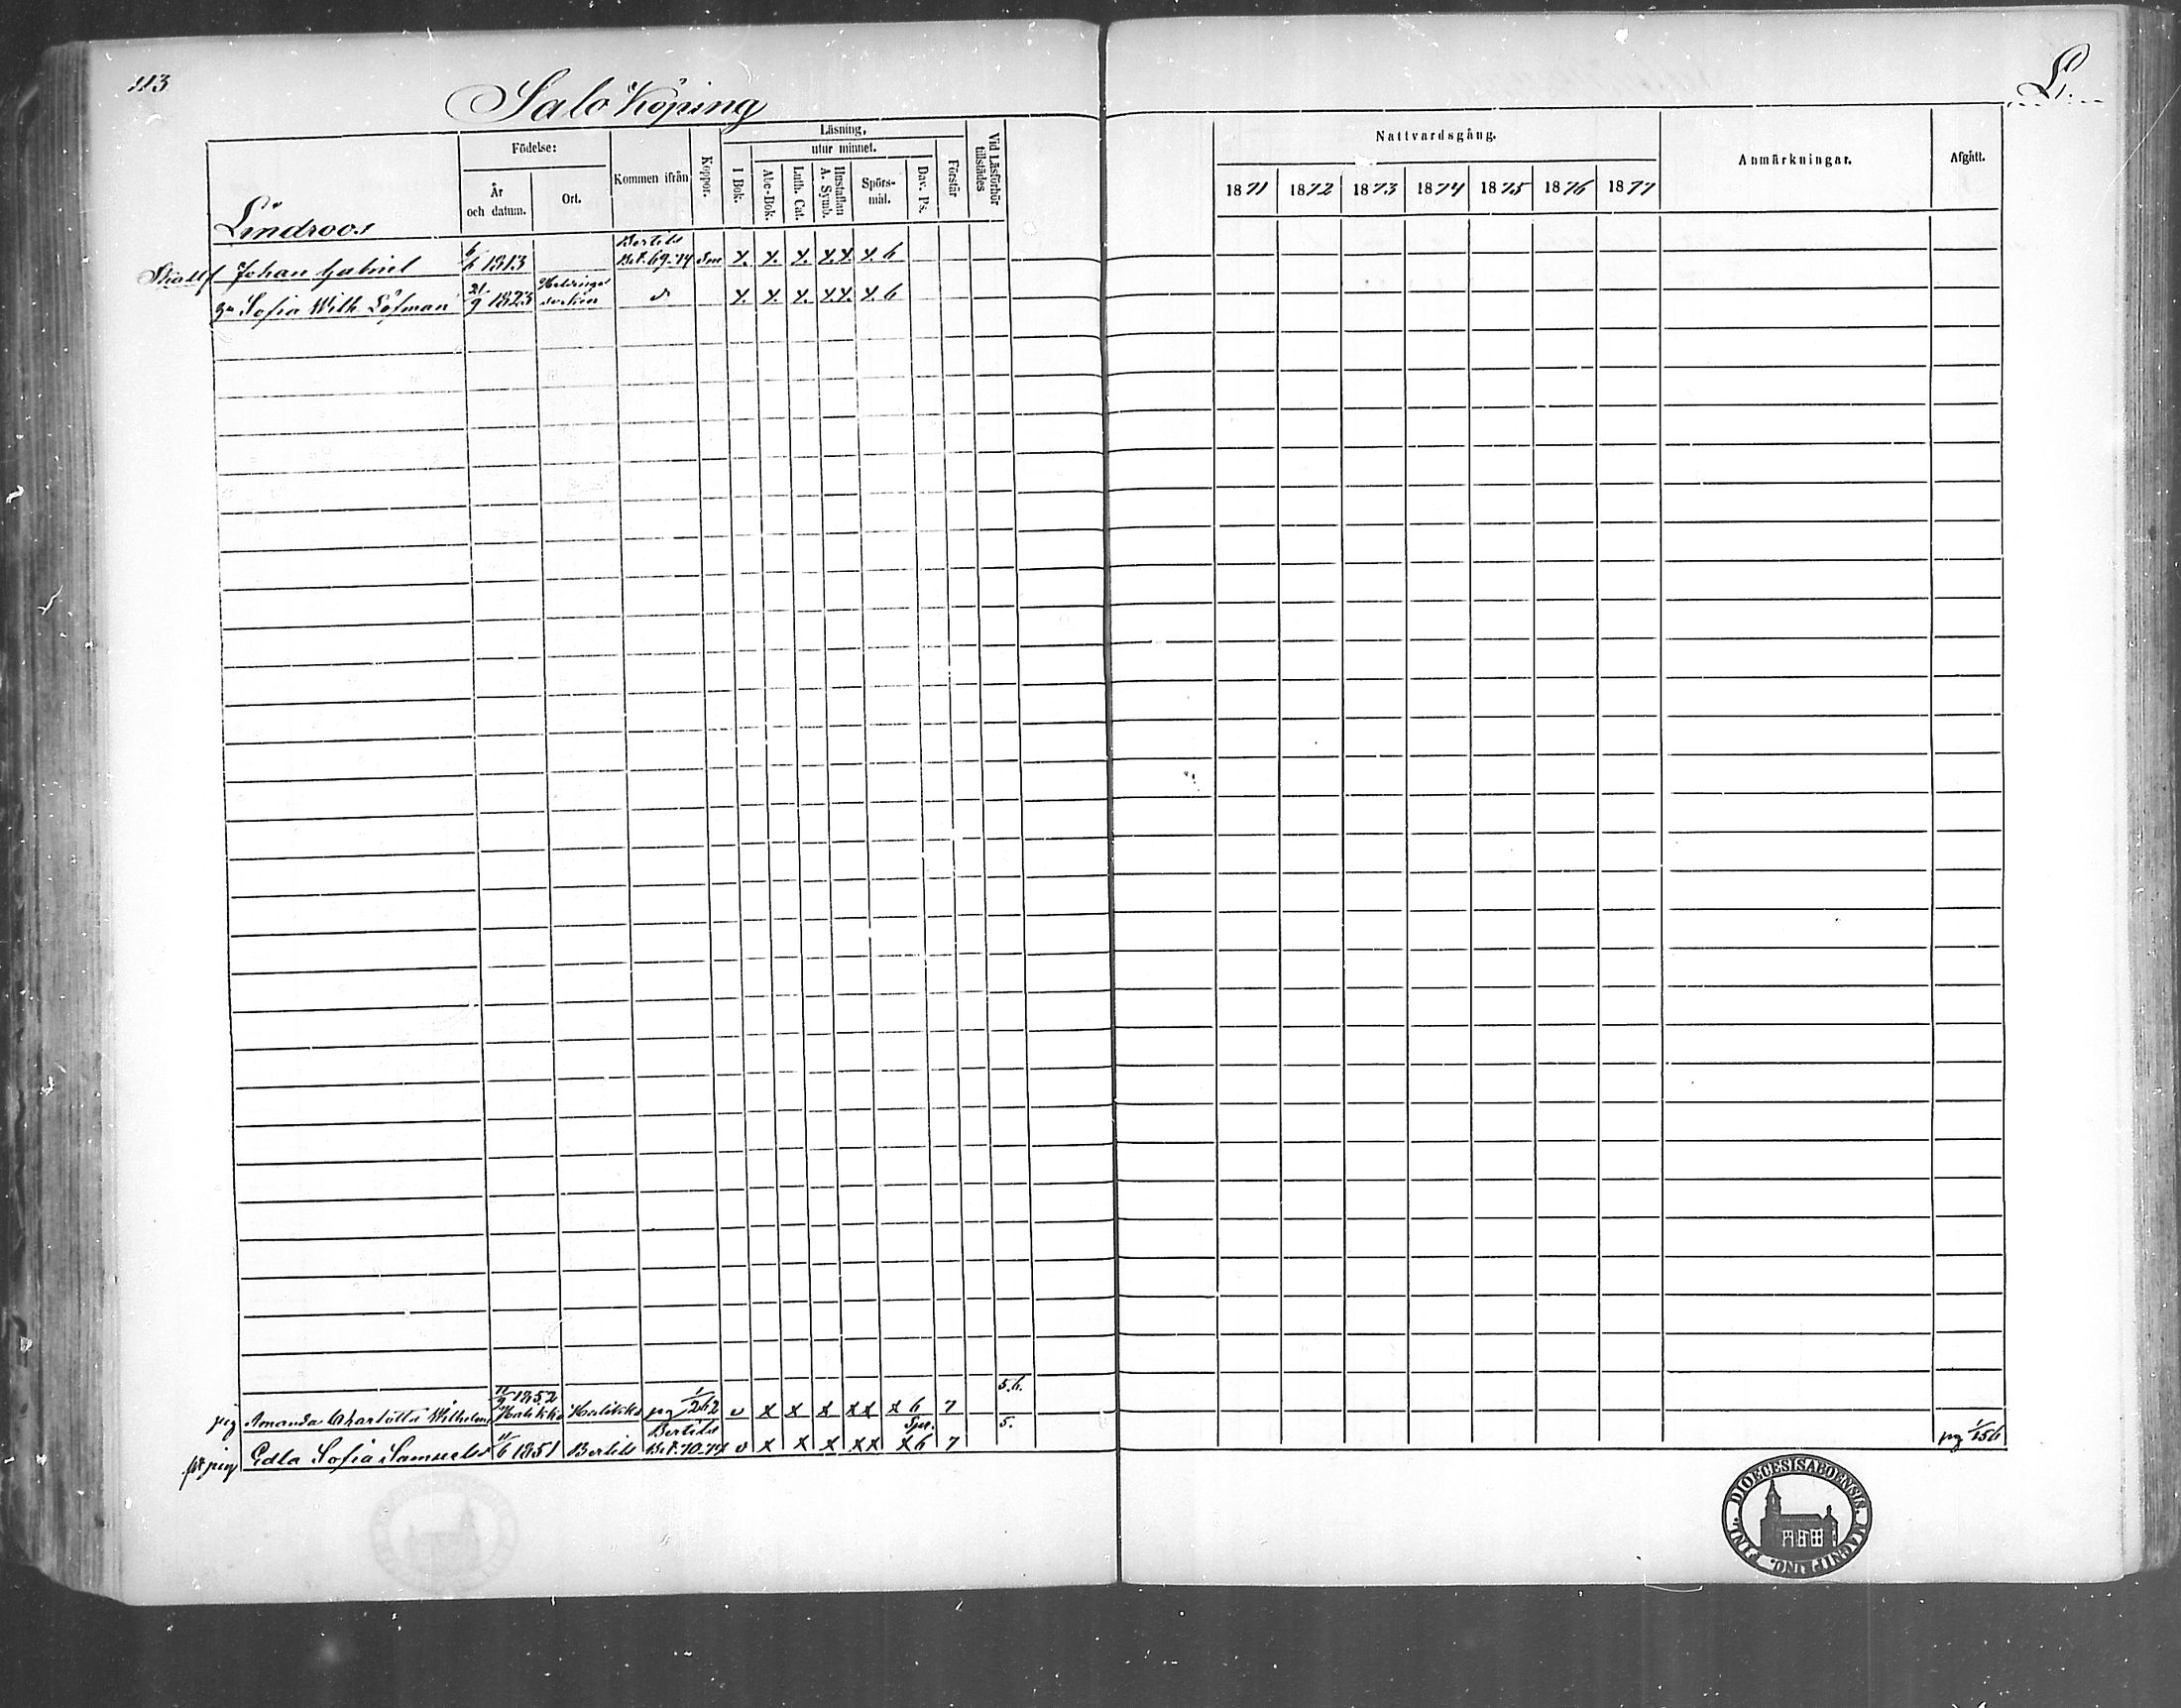 113
Salo Köping
L.
Födelse:
År och datum.
Ort.
Kommen ifrån
Koppor.
Läsning,
utur minnet.
I Bok.
Abc-Bok.
Luth. Cat.
Hustaflan A. Symb.
Spörs-mål.
Dav. Ps.
Förstår
Vid Läsförhör tillstädes
Nattvardsgång.
1871 1872 1873 1874 1875 1876 1877
Anmärkningar.
Afgått.
Lindroos
Johan Gabriel 1813 Bertils Bet. 69.74 x. x. x. x.x. x. 6
Sofia Wilh. Löfman 21/9 1823 x. x. x. x.x. x. 6
5.6.
pig Amanda Charlotta Wilhelms 1852 Halikko Halikko pg 1/262 v x x x xx x 6 7
5.
pig Edla Sofia Samuelsd 11/6 1851 Bertils Bertils Bet. 70.74 v x x x xx x 6 7 pg 1/156
DIOECESIS ABOENSIS. MAGNI PRINC. FINL.